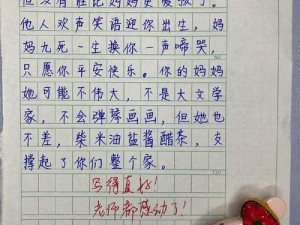 但没有谁比妈妈更爱孩子。
他人欢声笑语迎你出生，妈
妈九死一生换你一声啼哭，
只愿你平安快乐。你的妈妈
她可能不伟大，不是大文学
家，不会弹琴画画，但她也
不差，柴米油盐酱醋茶，支
撑起了你们整个家。
写得真好！
老师都感动了！